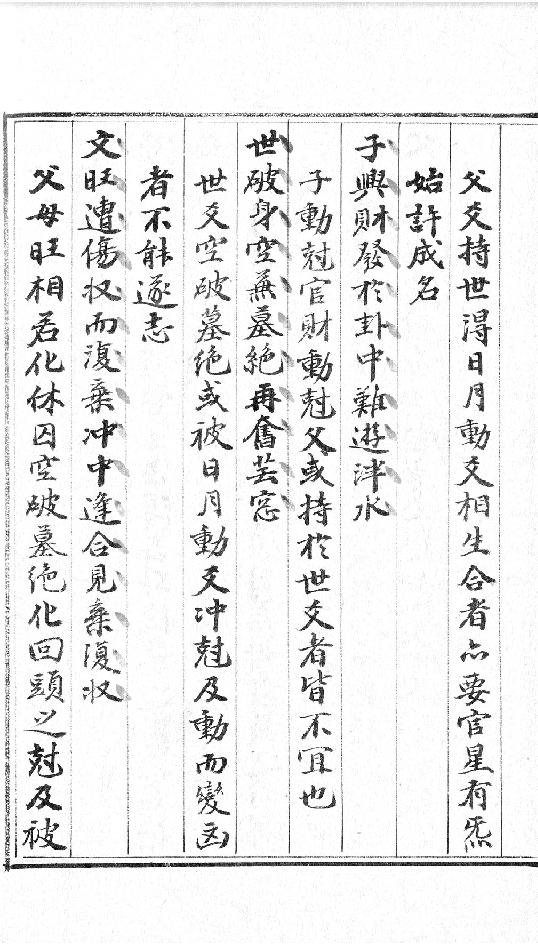 父爻持世得日月動爻相生合者亦要官星有炁
始許成名
子興財發於卦中難遊泮水
子動尅官財動尅父或持於世爻者皆不冝也
世破身空兼墓絶再奮芸窓
世爻空破墓绝或被日月動爻冲尅及動而變凶
者不能遂志
文旺遭傷収而復棄冲中逢合見棄復収
父母旺相若化休囚空破墓绝化回頭之尅及被